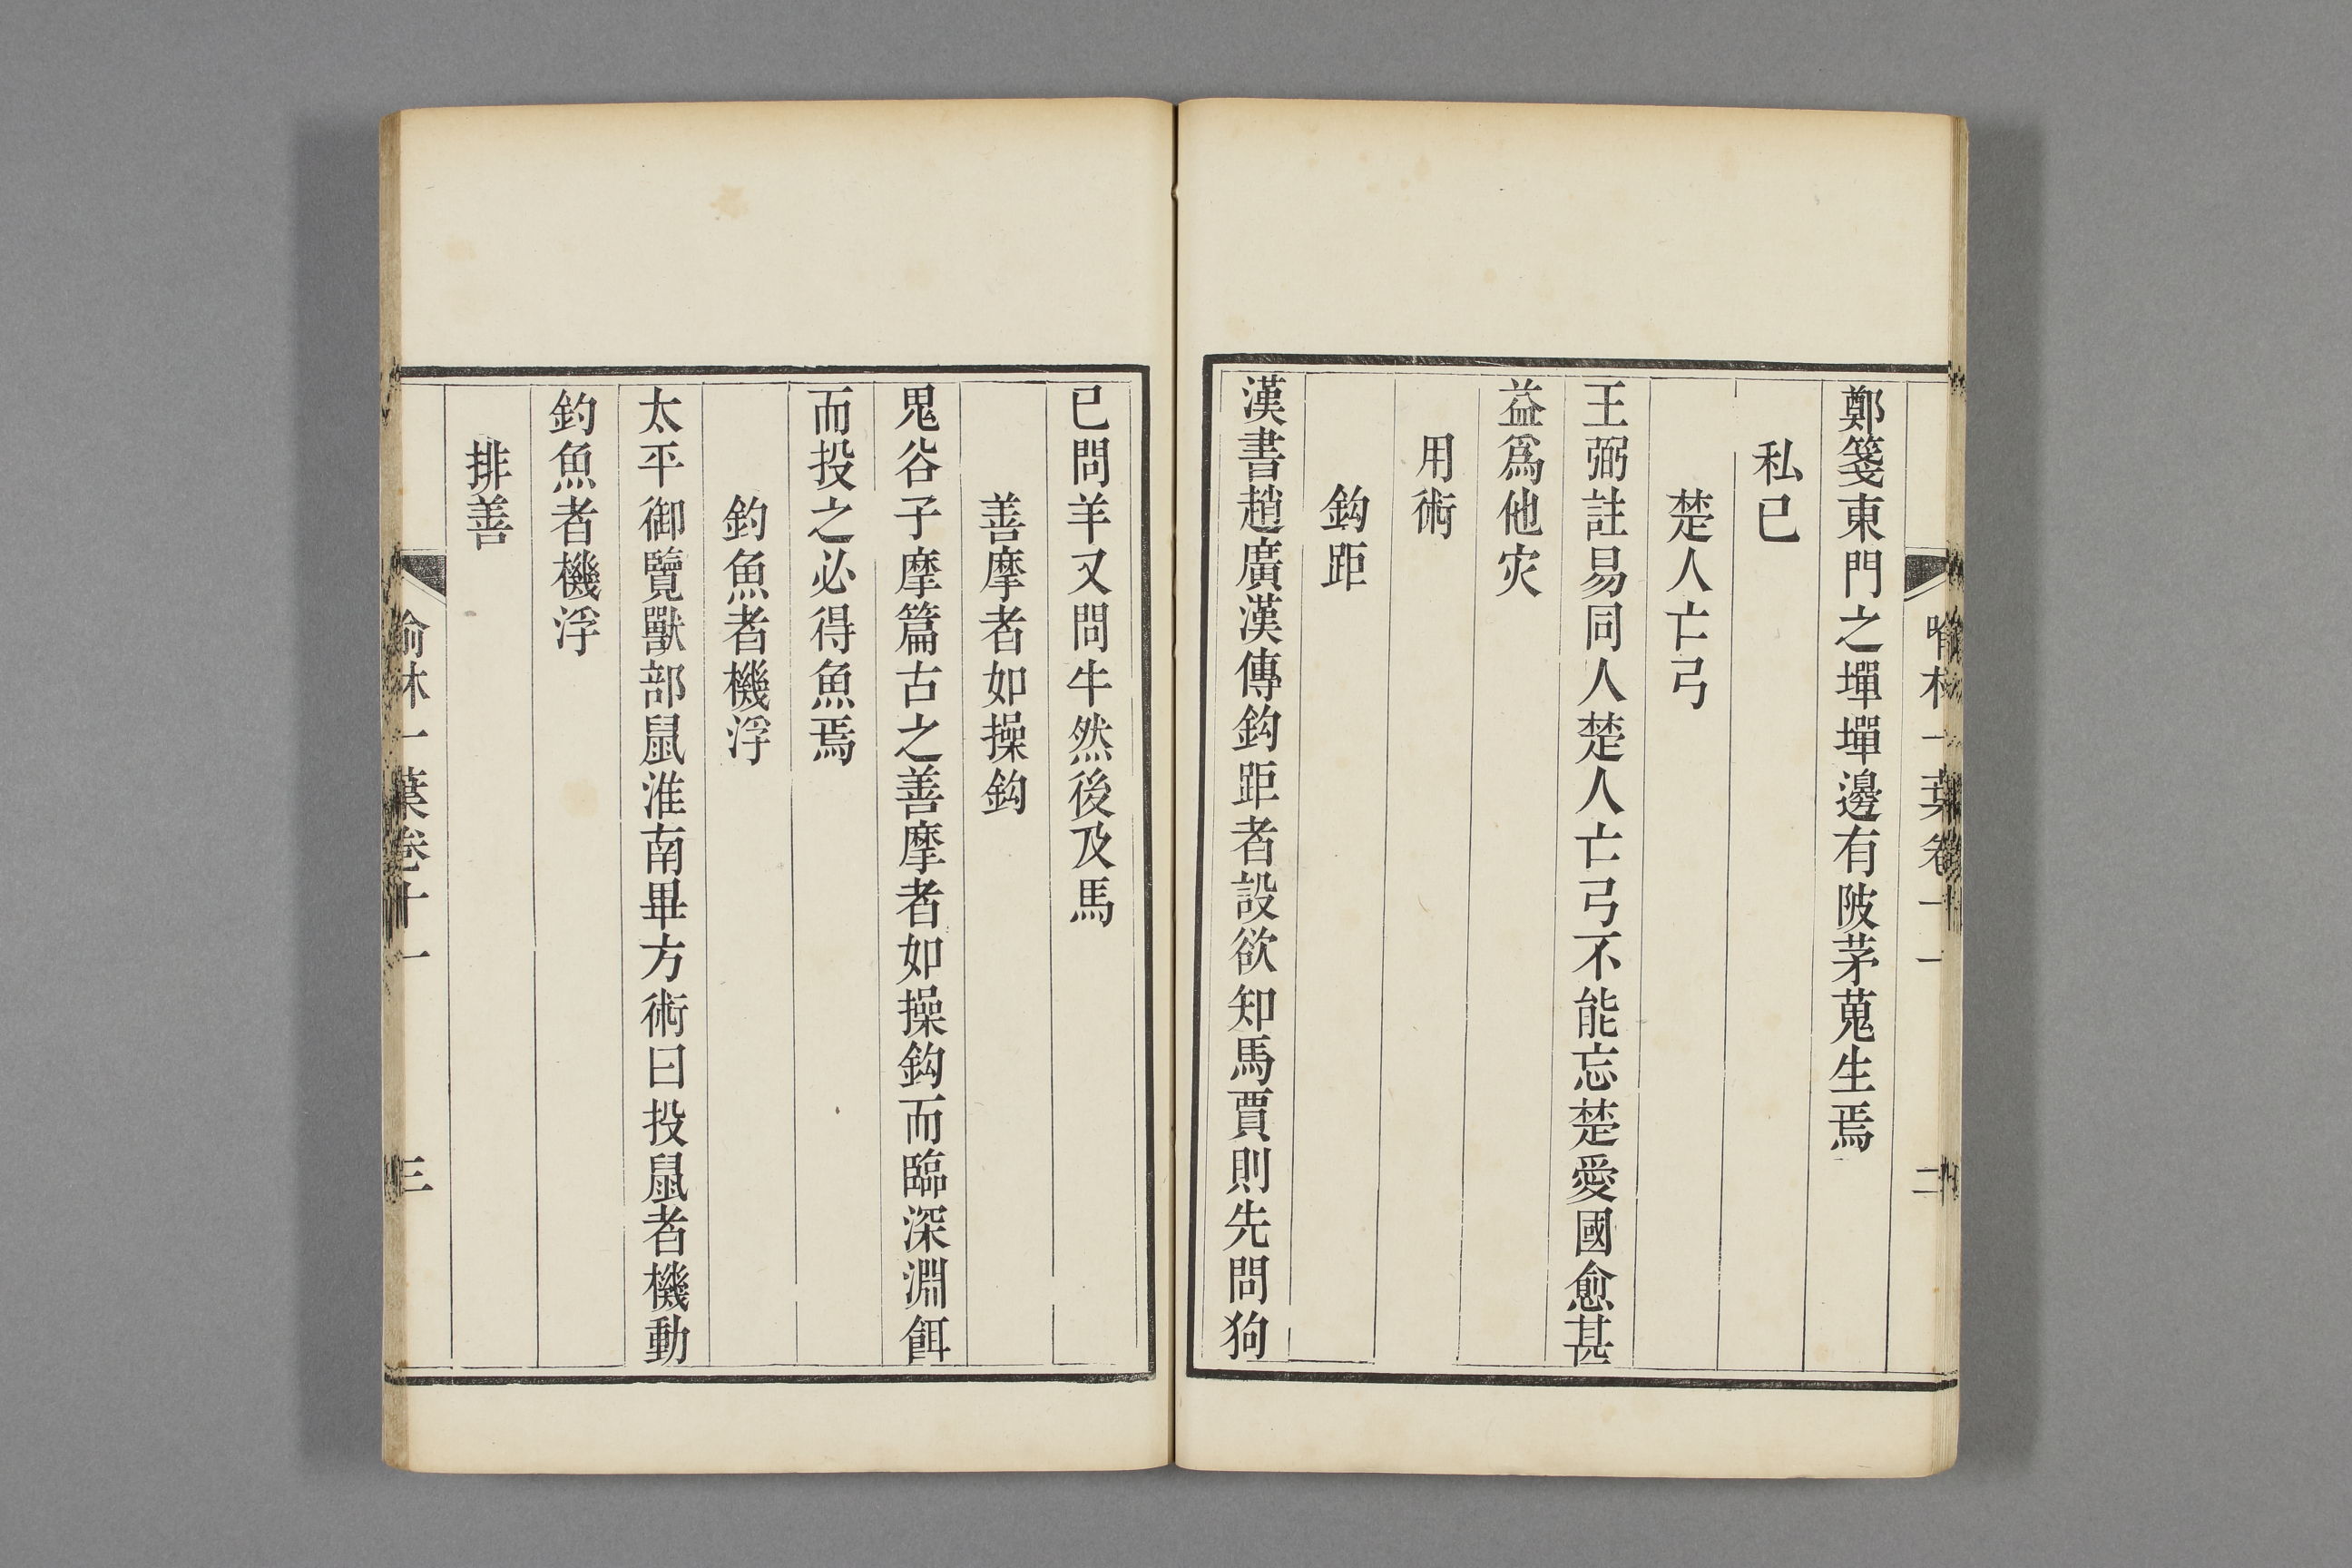 鄭箋東門之墠墠邊有陂茅蒐生焉
私已
楚人亡弓
王弼註易同人楚人亡弓不能忘楚愛國愈甚
益爲他灾
用術
鈎距
漢書趙廣漢傳鈎距者設欲知馬賈則先問狗
已問羊又問牛然後及馬
善摩者如操鈎
鬼谷子摩篇古之善摩者如操鈎而臨深淵餌
而投之必得魚焉
釣魚者機浮
太平御覽獸部鼠淮南畢方術曰投鼠者機動
釣魚者機浮
排善
喻林一葉卷十一
三